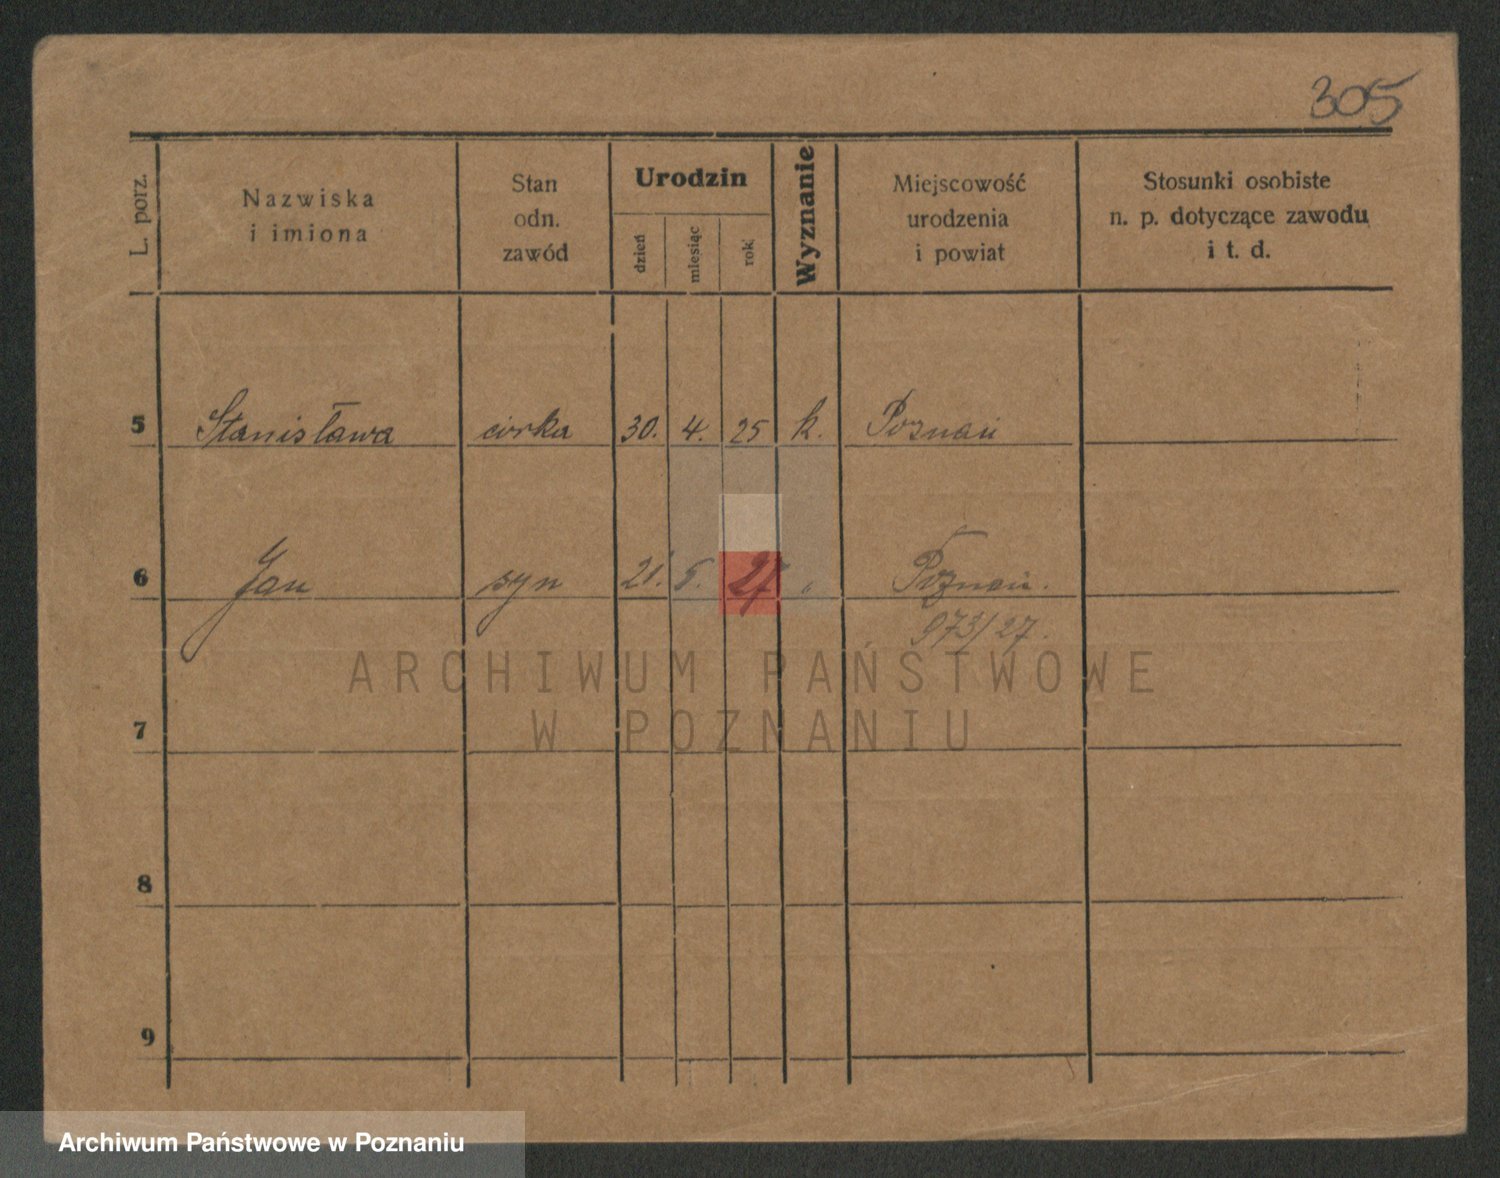 305
L. porz.
Nazwiska
i imiona
Stan
odn.
zawód
Urodzin
dzień
miesiąc
rok
Wyznanie
Miejscowość
urodzenia
i powiat
Stosunki osobiste
n. p. dotyczące zawodu
i t. d.
5 Stanisława córka 30. 4. 25 k. Poznań
6 Jan syn 21. 5. 27 " Poznań.
973/27.
7
8
9
ARCHIWUM PAŃSTWOWE
W POZNANIU
Archiwum Państwowe w Poznaniu